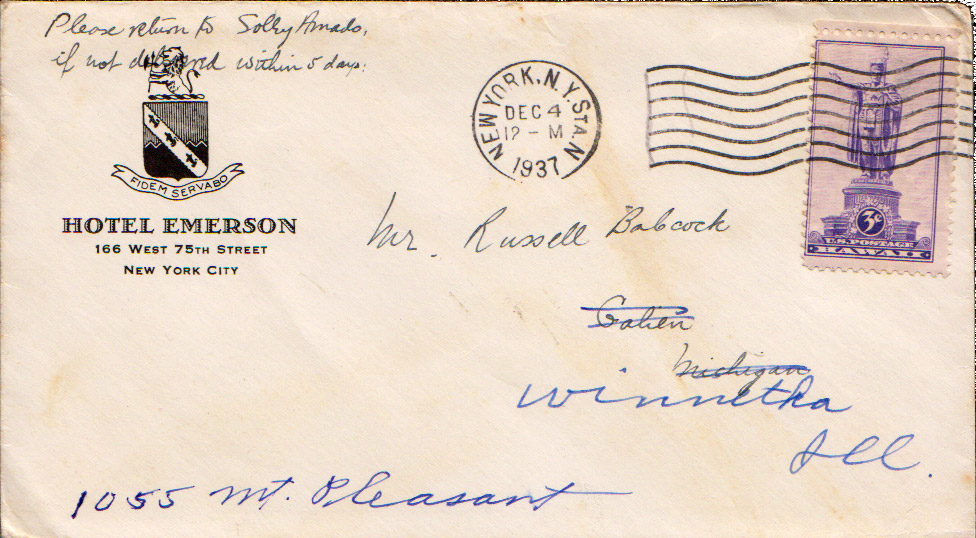 Please return to Solly Amado,
if not delivered within 5 days.
FIDEM SERVABO
HOTEL EMERSON
166 WEST 75TH STREET
NEW YORK CITY
NEW YORK, N.Y. STA. N
DEC 4
12 - M
1937
3¢
U.S. POSTAGE
HAWAII
Mr. Russell Babcock
Galien
Michigan
Winnetka
Ill.
1055 Mt. Pleasant